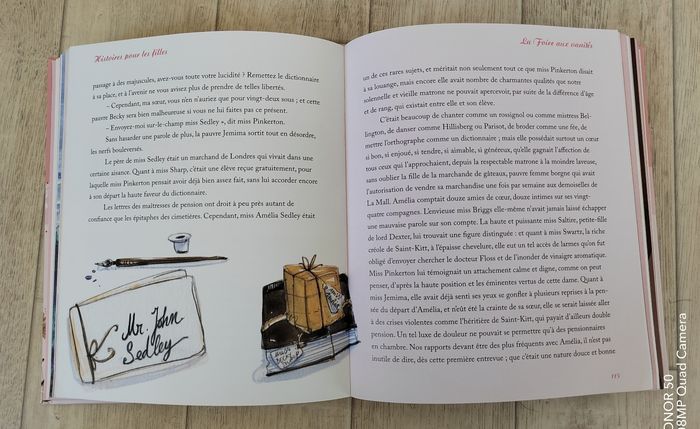 Histoires pour les filles
passage à des majuscules, avez-vous toute votre lucidité ? Remettez le dictionnaire
à sa place, et à l'avenir ne vous avisez plus de prendre de telles libertés.
– Cependant, ma sœur, vous n'en n'auriez que pour vingt-deux sous ; et cette
pauvre Becky sera bien malheureuse si vous ne lui faites pas ce présent.
– Envoyez-moi sur-le-champ miss Sedley », dit miss Pinkerton.
Sans hasarder une parole de plus, la pauvre Jemima sortit tout en désordre,
les nerfs bouleversés.
Le père de miss Sedley était un marchand de Londres qui vivait dans une
certaine aisance. Quant à miss Sharp, c'était une élève reçue gratuitement, pour
laquelle miss Pinkerton pensait avoir déjà bien assez fait, sans lui accorder encore
à son départ la haute faveur du dictionnaire.
Les lettres des maîtresses de pension ont droit à peu près autant de
confiance que les épitaphes des cimetières. Cependant, miss Amélia Sedley était
Mr. John
Sedley
La Foire aux vanités
un de ces rares sujets, et méritait non seulement tout ce que miss Pinkerton disait
à sa louange, mais encore elle avait nombre de charmantes qualités que notre
solennelle et vieille matrone ne pouvait apercevoir, par suite de la différence d'âge
et de rang, qui existait entre elle et son élève.
C'était beaucoup de chanter comme un rossignol ou comme mistress Bel-
lington, de danser comme Hillisberg ou Parisot, de broder comme une fée, de
mettre l'orthographe comme un dictionnaire ; mais elle possédait surtout un cœur
si bon, si enjoué, si tendre, si aimable, si généreux, qu'elle gagnait l'affection de
tous ceux qui l'approchaient, depuis la respectable matrone à la moindre laveuse,
sans oublier la fille de la marchande de gâteaux, pauvre femme borgne qui avait
l'autorisation de vendre sa marchandise une fois par semaine aux demoiselles de
La Mall. Amélia comptait douze amies de cœur, douze intimes sur ses vingt-
quatre compagnes. L'envieuse miss Briggs elle-même n'avait jamais laissé échapper
une mauvaise parole sur son compte. La haute et puissante miss Saltire, petite-fille
de lord Dexter, lui trouvait une figure distinguée : et quant à miss Swartz, la riche
créole de Saint-Kitt, à l'épaisse chevelure, elle eut un tel accès de larmes qu'on fut
obligé d'envoyer chercher le docteur Floss et de l'inonder de vinaigre aromatique.
Miss Pinkerton lui témoignait un attachement calme et digne, comme on peut
penser, d'après la haute position et les éminentes vertus de cette dame. Quant à
miss Jemima, elle avait déjà senti ses yeux se gonfler à plusieurs reprises à la pen-
sée du départ d'Amélia, et n'eût été la crainte de sa sœur, elle se serait laissée aller
à des crises violentes comme l'héritière de Saint-Kitt, qui payait d'ailleurs double
pension. Un tel luxe de douleur ne pouvait se permettre qu'à des pensionnaires
en chambre. Nos rapports devant être des plus fréquents avec Amélia, il n'est pas
inutile de dire, dès cette première entrevue ; que c'était une nature douce et bonne
115
HONOR 50
108MP Quad Camera